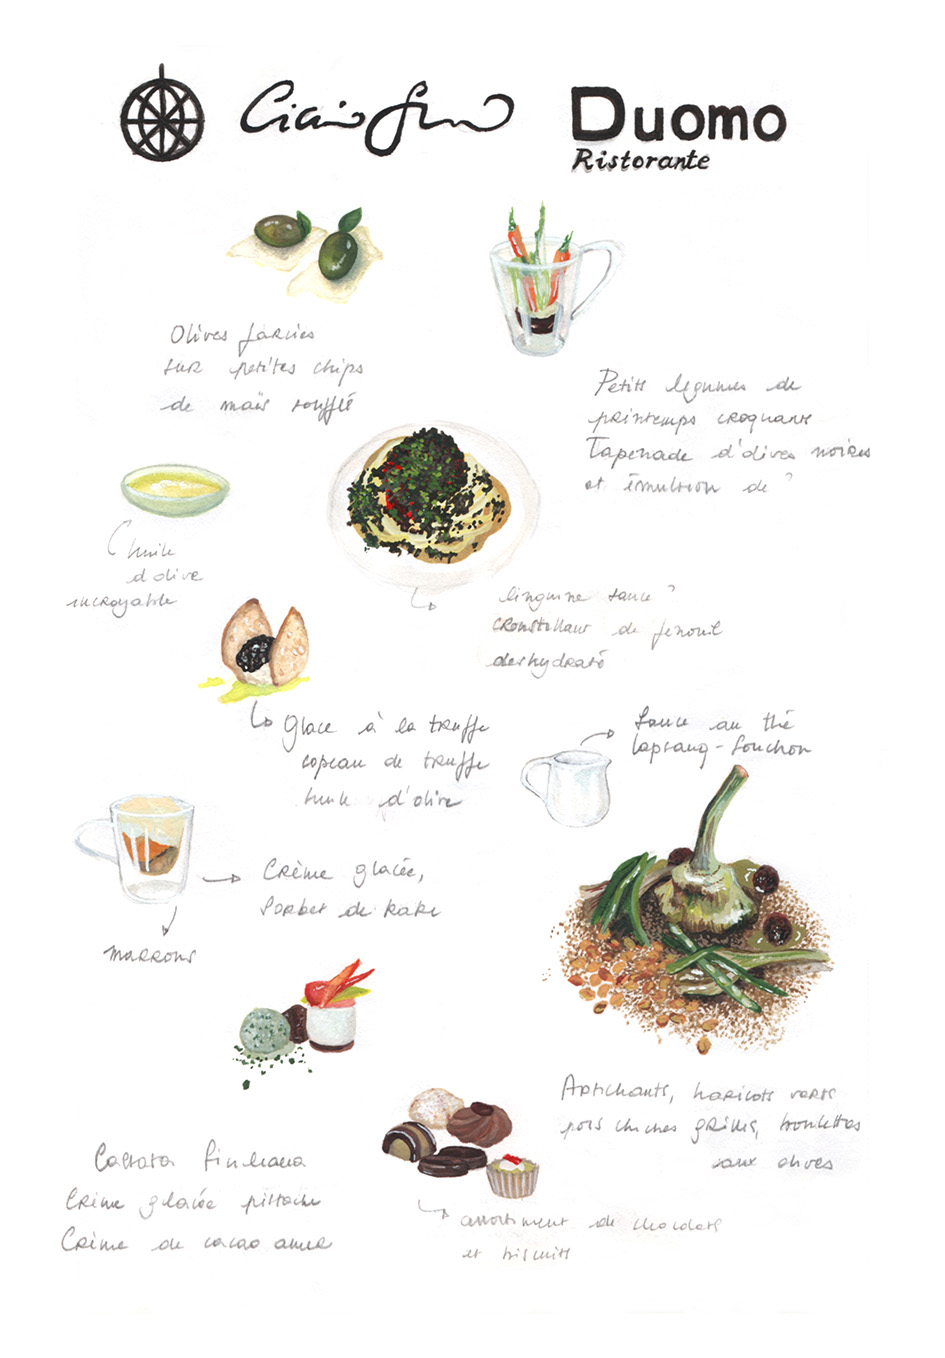 Duomo
Ristorante
Olives farcies
sur petites chips
de maïs soufflé
Petits legumes de
printemps croquants
Tapenade d'olives noires
et émulsion de ?
huile
d'olive
incroyable
linguine sauce ?
croustillant de fenouil
deshydraté
glace à la truffe
copeau de truffe
huile d'olive
Sauce au thé
lapsang-souchon
Crème glacée,
Sorbet de kaki
marrons
Artichauts, haricots verts
pois chiches grillés, boulettes
aux olives
Cassata Siciliana
Crème glacée pistache
Crème de cacao amer
assortiment de chocolats
et biscuits